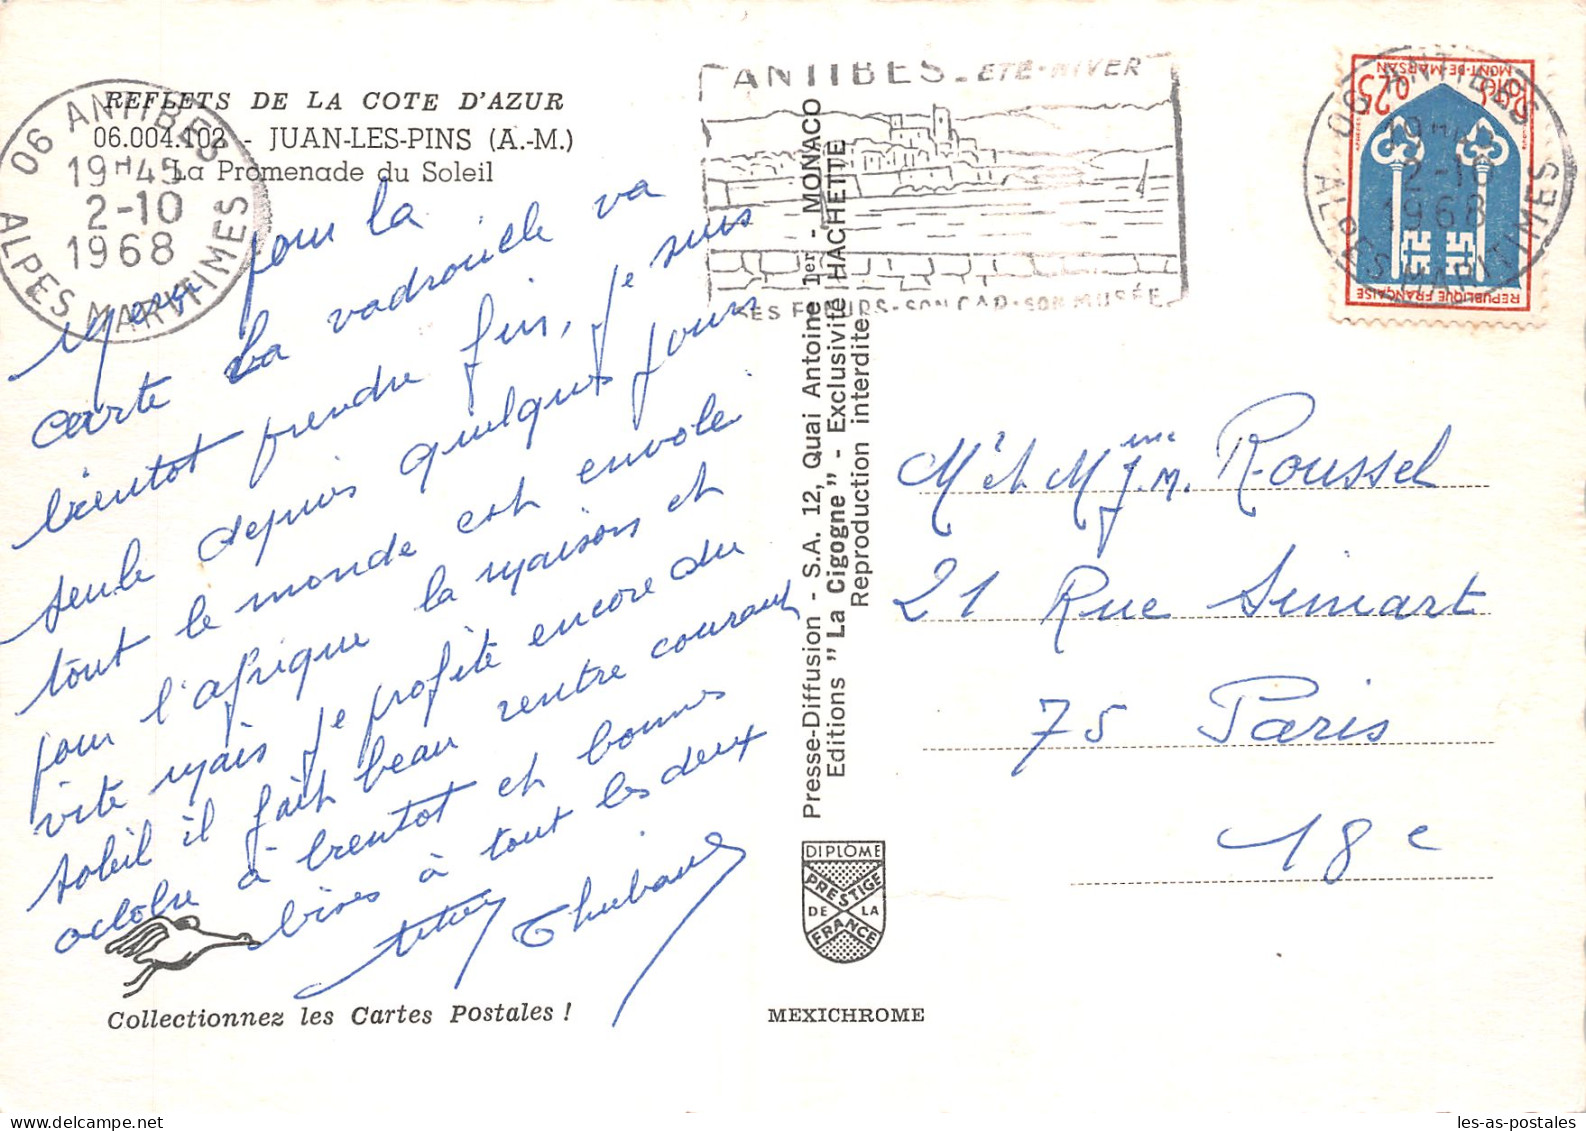 REFLETS DE LA COTE D'AZUR
06.004.102 - JUAN-LES-PINS (A.-M.)
La Promenade du Soleil
06 ANTIBES
19H45
2-10
1968
ALPES MARITIMES
pour la
carte la vadrouille va
bientot prendre fin, je suis
seule depuis quelques jours
tout le monde est envolé
pour l'afrique la maison et
vite mais je profite encore du
soleil il fait beau rentre courant
octobre à bientot et bonnes
bises à tout les deux
Thubaud
Collectionnez les Cartes Postales !
Presse-Diffusion - S.A. 12, Quai Antoine 1er - MONACO
Editions "La Cigogne" - Exclusivité HACHETTE
Reproduction interdite
DIPLÔME
PRESTIGE
DE LA
FRANCE
MEXICHROME
ANTIBES - ÉTÉ-HIVER
SES FLEURS - SON CAP - SON MUSÉE
06 ANTIBES
19H45
2-10
1968
ALPES MARITIMES
0,25
Postes
MONT-DE-MARSAN
REPUBLIQUE FRANÇAISE
Mr et Mme J.M. Roussel
21 Rue Simart
75 Paris
18e
les-as-postales